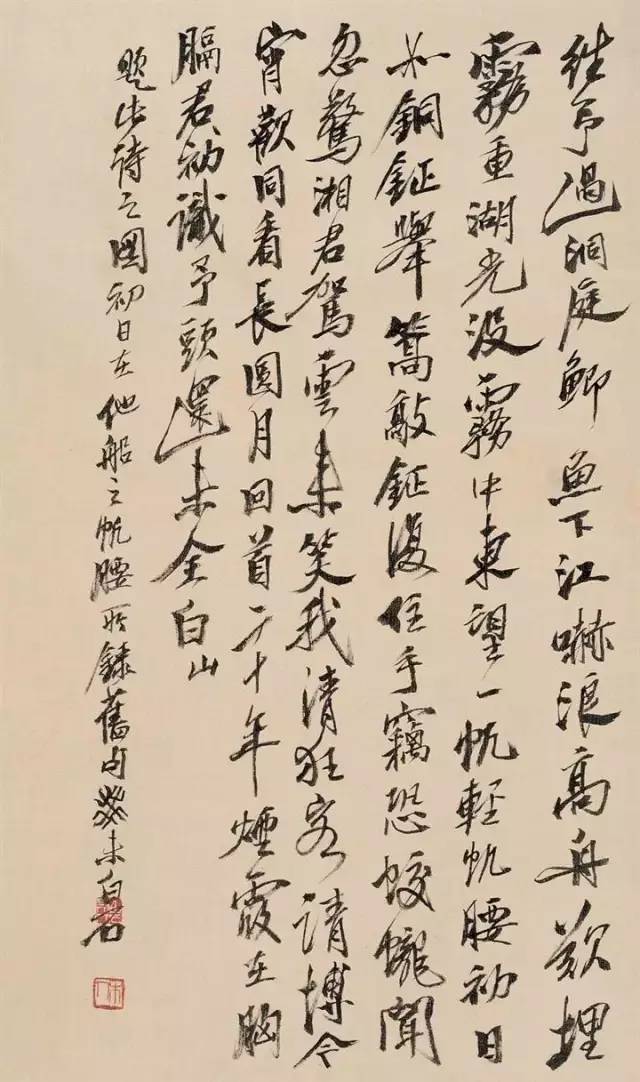 往予過洞庭鯽魚下江嚇浪高舟欲埋
霧重湖光没霧中東望一帆輕帆腰初日
如銅鉦舉篙敲鉦復住手竊恐蛟蠬聞
忽驚湘君駕雲来笑我清狂客請博今
宵歡同看長圓月回首二十年煙霞在胸
膈君初識予頭還未全白山
題此詩之圖初日在他船之帆腰所錄舊句癸未白石